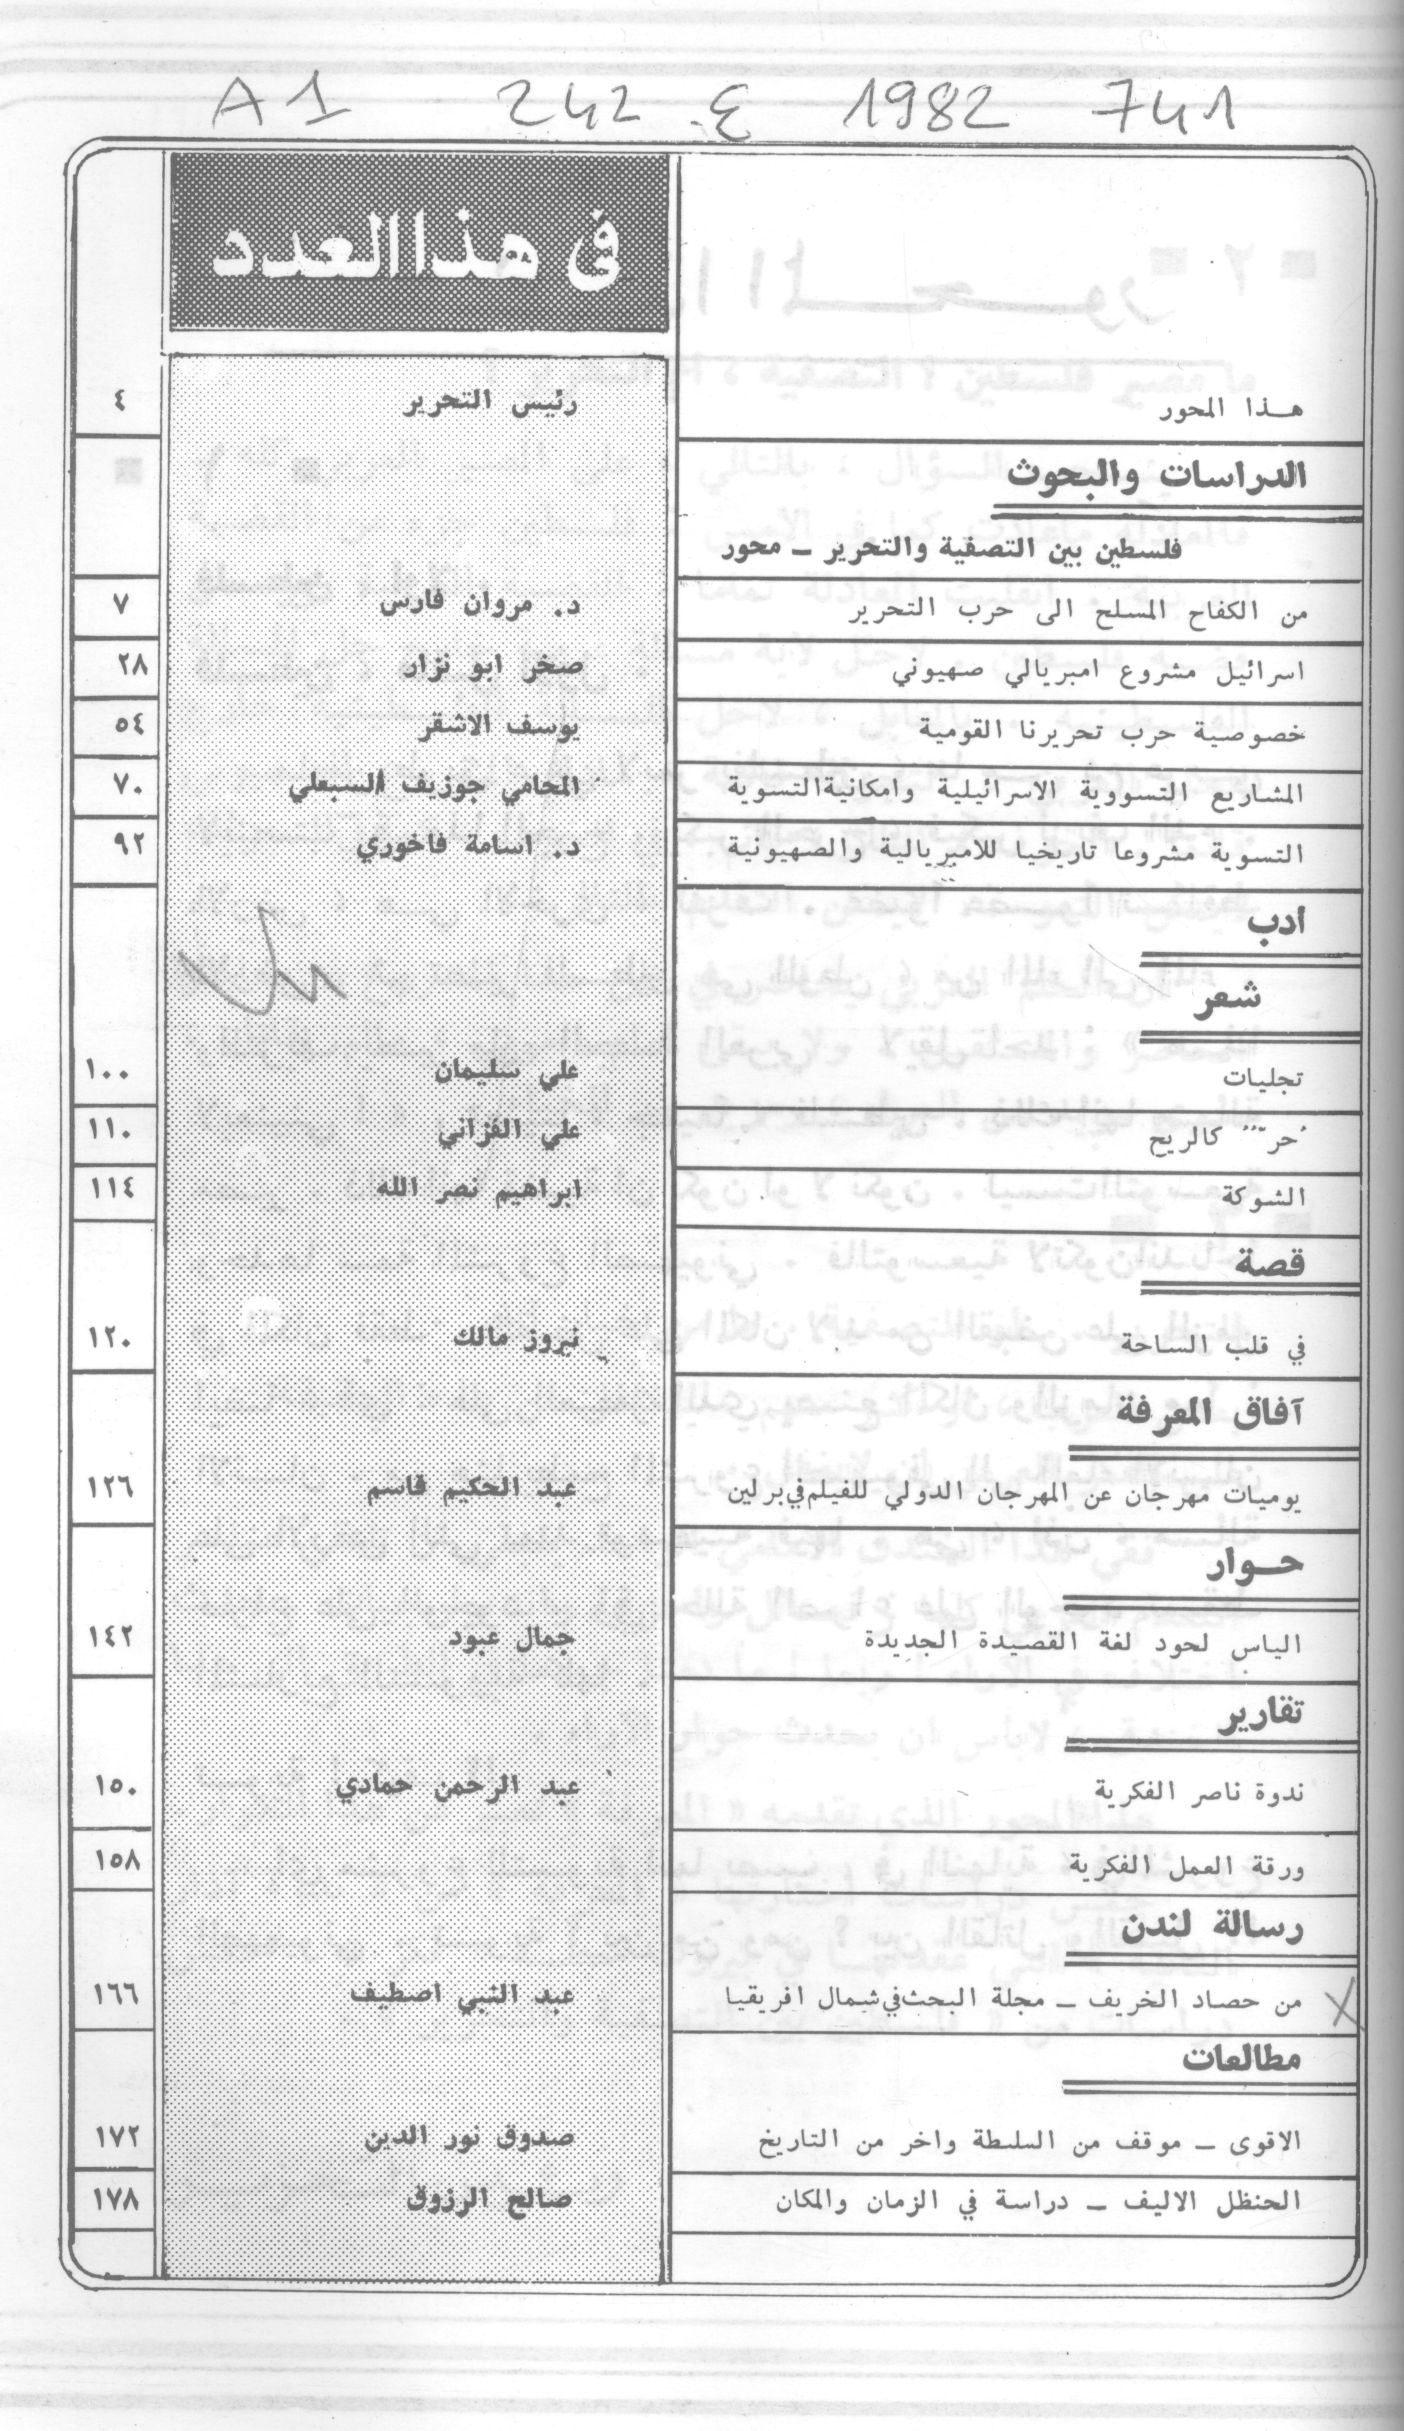 A1 242 ع. 1982 741
في هذا العدد
هـذا المحور رئيس التحرير ٤
الدراسات والبحوث
فلسطين بين التصفية والتحرير ــ محور
من الكفاح المسلح الى حرب التحرير د. مروان فارس ٧
اسرائيل مشروع امبريالي صهيوني صخر ابو نزار ٢٨
خصوصية حرب تحريرنا القومية يوسف الاشقر ٥٤
المشاريع التسووية الاسرائيلية وامكانية التسوية المحامي جوزيف السبعلي ٧٠
التسوية مشروعا تاريخيا للامبريالية والصهيونية د. اسامة فاخوري ٩٢
أدب
شعر
تجليات علي سليمان ١٠٠
حر كالريح علي الفزاني ١١٠
الشوكة ابراهيم نصر الله ١١٤
قصة
في قلب الساحة نيروز مالك ١٢٠
آفاق المعرفة
يوميات مهرجان عن المهرجان الدولي للفيلم في برلين عبد الحكيم قاسم ١٢٦
حـوار
الياس لحود لغة القصيدة الجديدة جمال عبود ١٤٢
تقارير
ندوة ناصر الفكرية عبد الرحمن حمادي ١٥٠
ورقة العمل الفكرية ١٥٨
رسالة لندن
من حصاد الخريف ــ مجلة البحث في شمال افريقيا عبد النبي اصطيف ١٦٦
مطالعات
الاقوى ــ موقف من السلطة واخر من التاريخ صدوق نور الدين ١٧٢
الحنظل الاليف ــ دراسة في الزمان والمكان صالح الرزوق ١٧٨